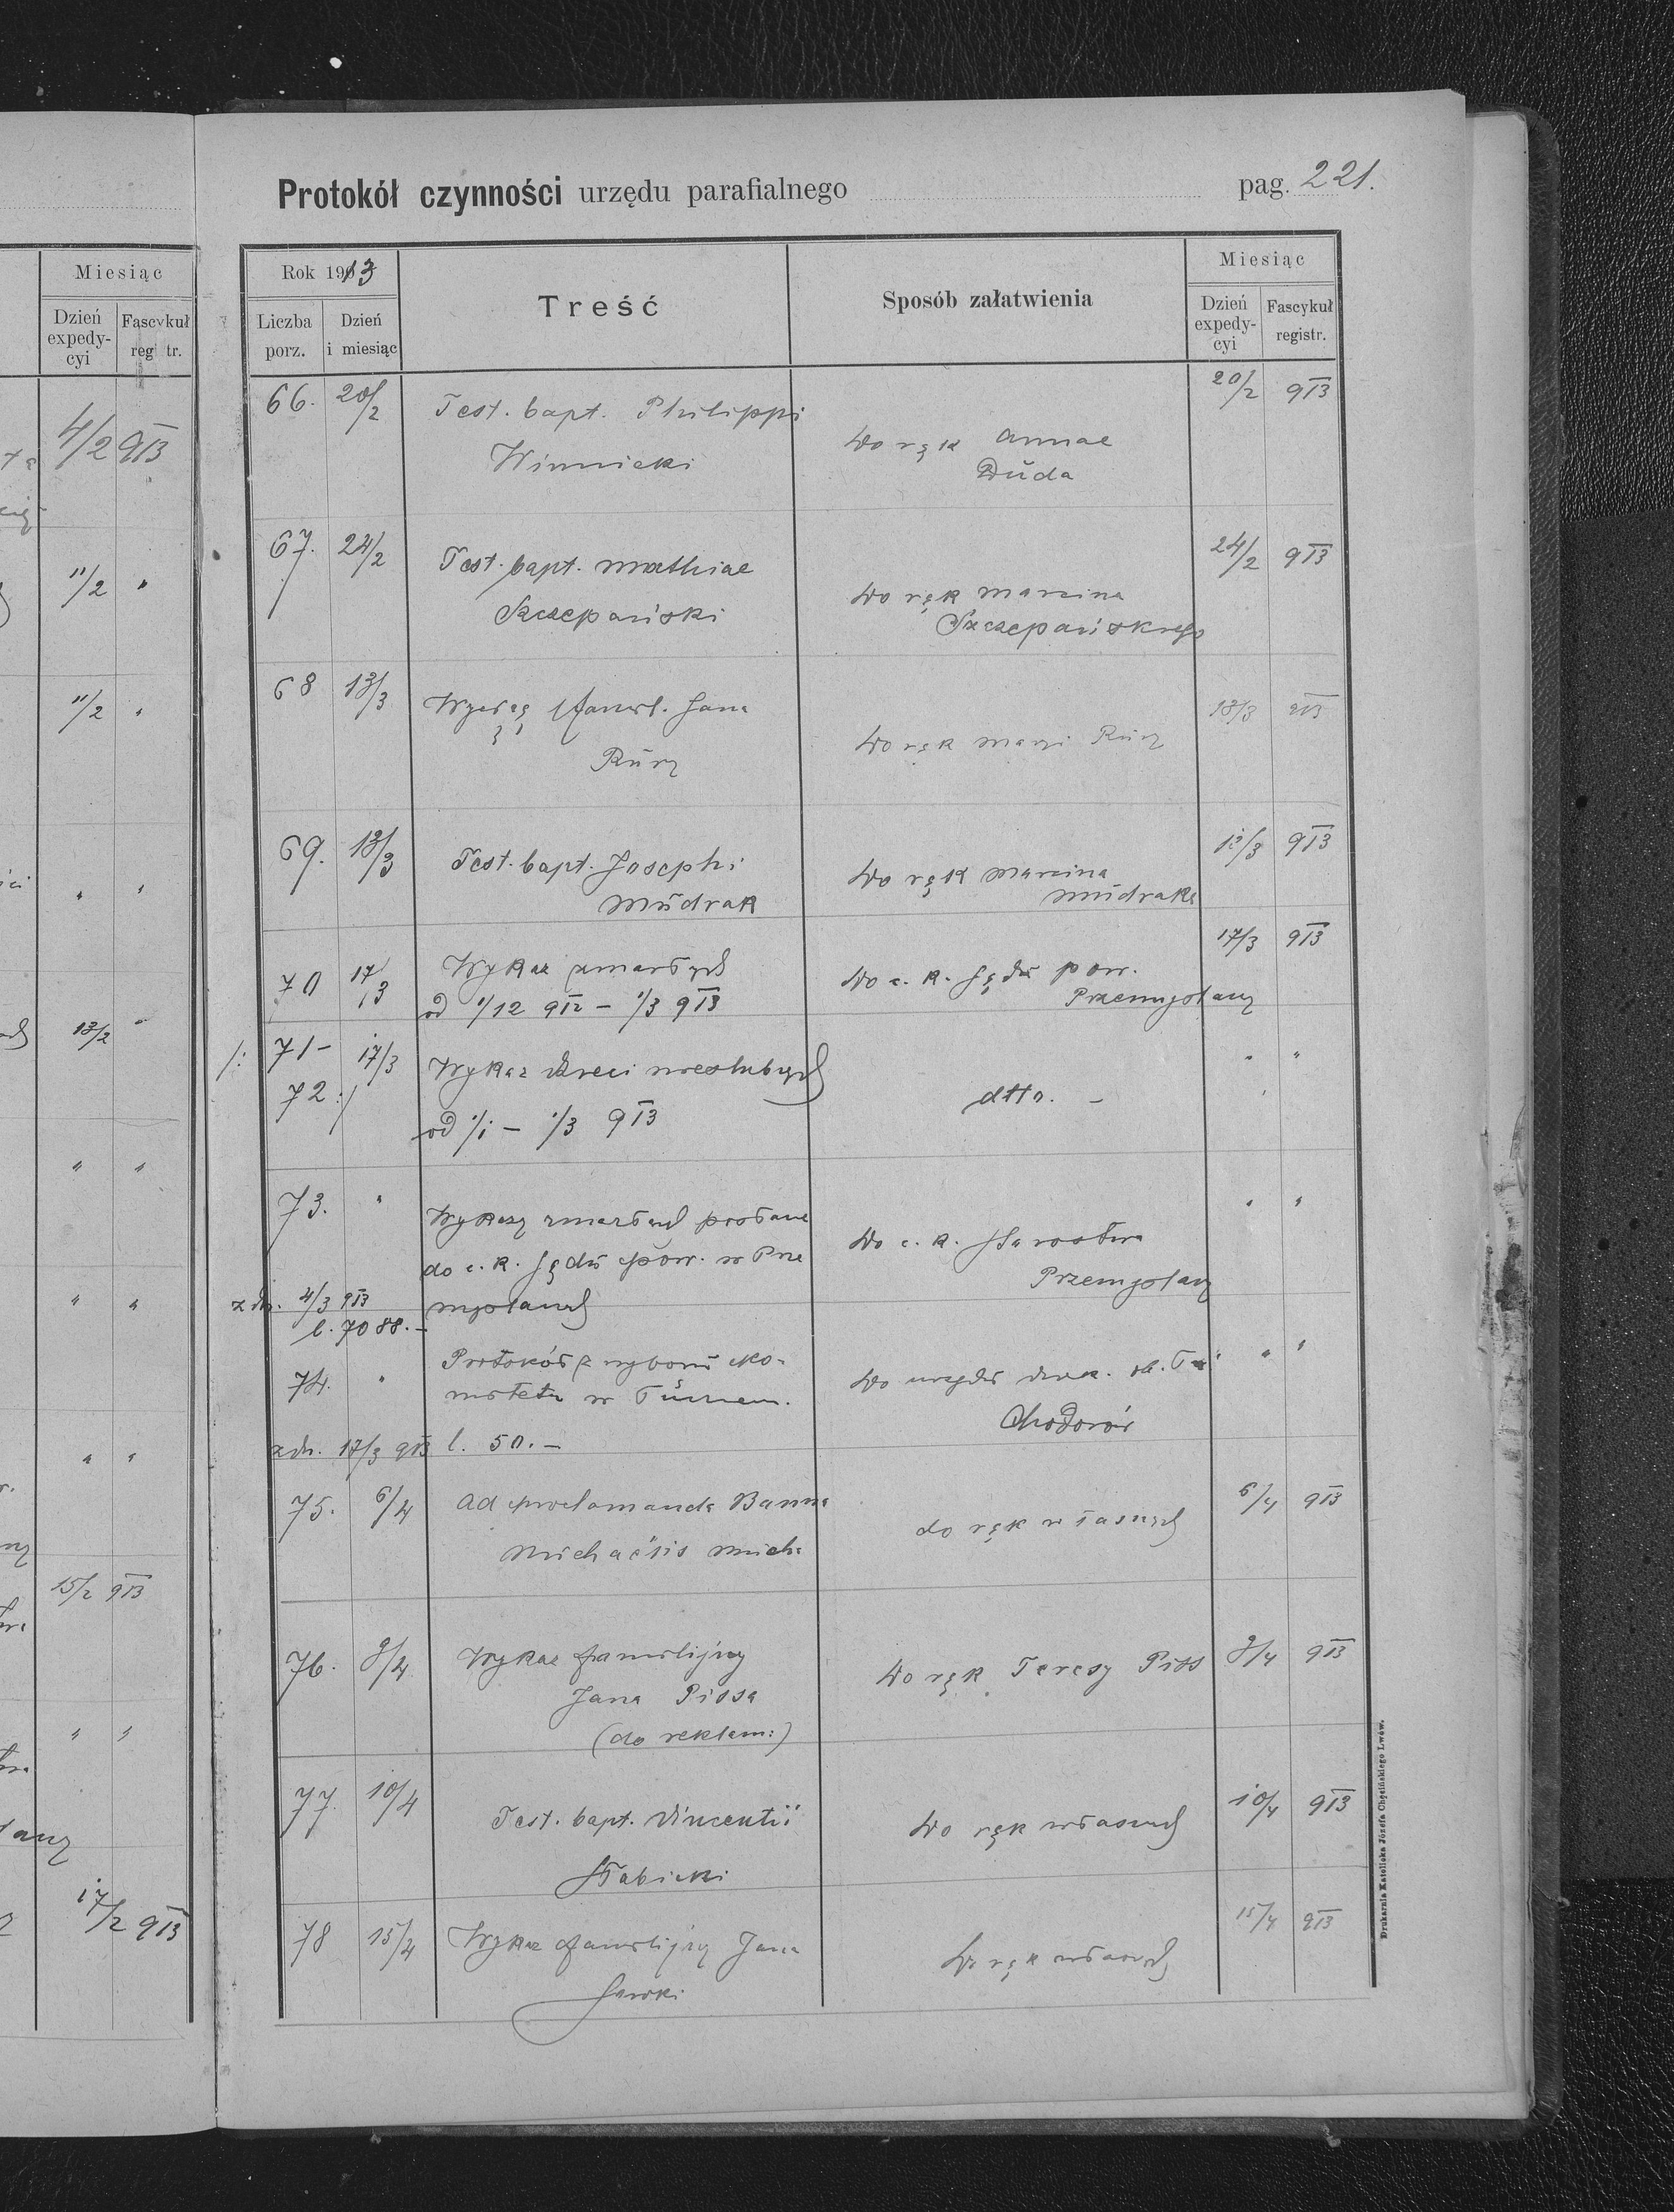 Protokół czynności urzędu parafialnego pag. 221.
Miesiąc
Dzień expedycyi
Fascykuł registr.
4/2 913
11/2 "
11/2 "
" "
13/2 "
" "
" "
" "
15/2 913
" "
17/2 913
Rok 1913
Liczba porz.
Dzień i miesiąc
Treść
Sposób załatwienia
Miesiąc
Dzień expedycyi
Fascykuł registr.
66. 20/2 Test. bapt. Philippi Do rąk Annae 20/2 913
Winnicki Duda
67. 24/2 Test. bapt. Mathiae Do rąk Marcina 24/2 913
Szczepański Szczepańskiego
68 13/3 Wyciąg famil. Jana Do rąk Maryi 13/3 913
69. 13/3 Test. bapt. Josephi Do rąk Marcina 13/3 913
Mudrak Mudraka
70 17/3 Wykaz zmarłych Do c. k. Sądu pow. 17/3 913
od 1/12 912 – 1/3 913 Przemyślany
/: 71– 17/3 Wykaz dzieci nieślubnych " "
72 :/ od 1/1 – 1/3 913 dtto. –
73. " Wykazy zmarłych posłane Do c. k. Starostwa " "
do c. k. Sądu pow. w Prze Przemyślany
z dn. 4/3 913 myślanach
l. 7088. –
74. " Protokół z wyboru ko- Do urzędu " "
mitetu w
Chodorów
z dn. 17/3 913 l. 50. –
75. 6/4 Ad proclamanda Banna do rąk własnych 6/4 913
Michaëlis
76. 9/4 Wykaz familijny Do rąk Teresy Piss 9/4 913
Jana Pissa
(do reklam:)
77. 10/4 Test. bapt. Vincentii Do rąk własnych 10/4 913
Słabicki
78 15/4 Wykaz familijny Jana Do rąk własnych 15/4 913
Sawki
Drukarnia Katolicka Józefa Chęcińskiego Lwów.